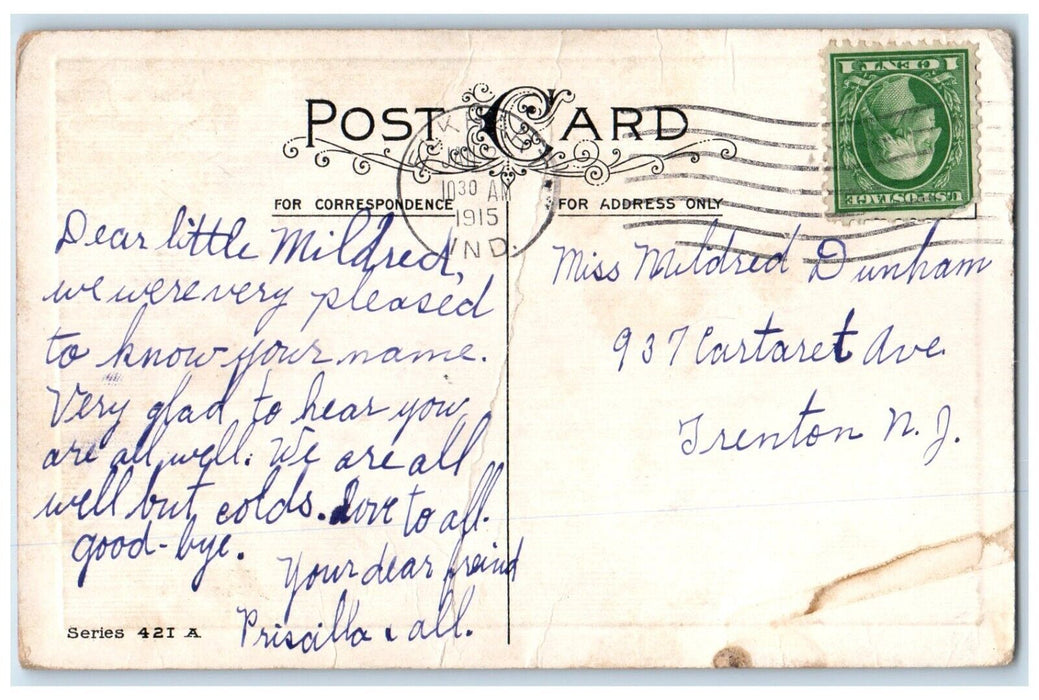 POST CARD
1 CENT 1
U.S. POSTAGE
10 30 AM
1915
IND.
FOR CORRESPONDENCE
FOR ADDRESS ONLY
Dear little Mildred,
we were very pleased
to know your name.
Very glad to hear you
are all well. We are all
well but colds. Love to all.
good-bye.
Your dear freind
Priscilla & all.
Series 421 A
Miss Mildred Dunham
937 Cartaret Ave.
Trenton N.J.